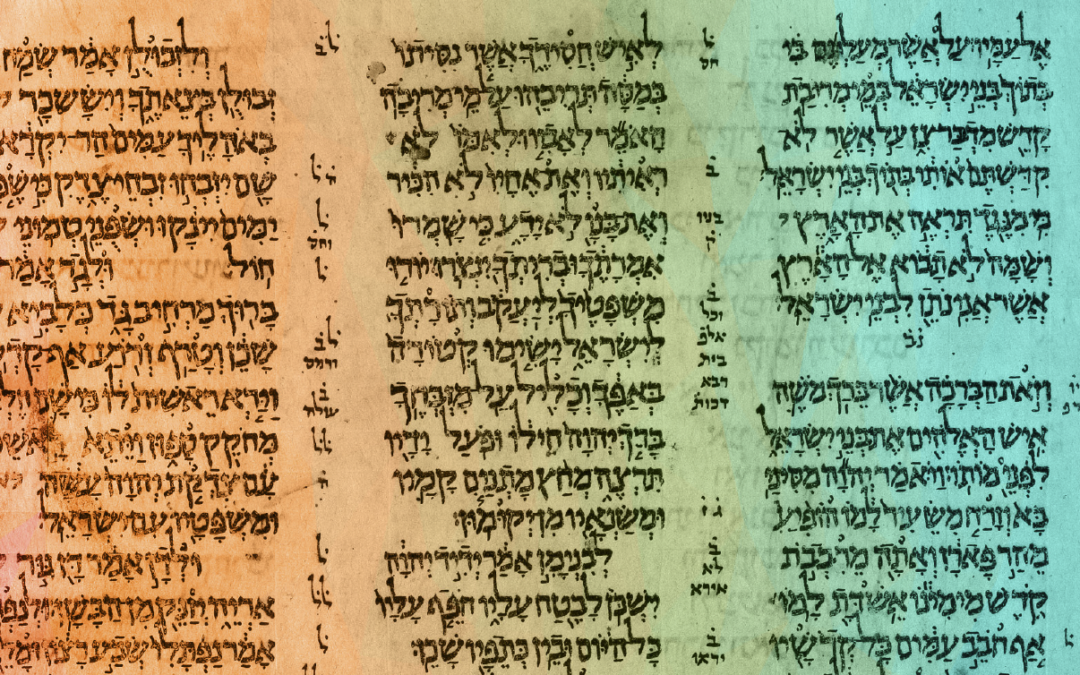 אל עמיו על אשר מעלתם בי
בתוך בני ישראל במי מריבת
קדש מדבר צן על אשר לא
קדשתם אותי בתוך בני ישראל
כי מנגד תראה את הארץ
ושמה לא תבוא אל הארץ
אשר אני נתן לבני ישראל
וזאת הברכה אשר ברך משה
איש האלהים את בני ישראל
לפני מותו ויאמר יהוה מסיני
בא וזרח משעיר למו הופיע
מהר פארן ואתה מרבבת
קדש מימינו אשדת למו
אף חבב עמים כל קדשיו
לאיש חסידך אשר נסיתו
במסה תריבהו על מי מריבה
האמר לאביו ולאמו לא
ראיתיו ואת אחיו לא הכיר
ואת בנו לא ידע כי שמרו
אמרתך ובריתך ינצרו יורו
משפטיך ליעקב ותורתך
לישראל ישימו קטורה
באפך וכליל על מזבחך
ברך יהוה חילו ופעל ידיו
תרצה מחץ מתנים קמיו
ומשנאיו מן יקומון
לבנימן אמר ידיד יהוה
ישכן לבטח עליו חפף עליו
כל היום ובין כתפיו שכן
ולזבולן אמר שמח
זבולן בצאתך ויששכר
באהליך עמים הר יקראו
שם יזבחו זבחי צדק כי שפע
ימים יינקו ושפני טמוני
חול ולגד אמר
ברוך מרחיב גד כלביא
שכן וטרף זרוע אף קדקד
וירא ראשית לו כי שם
מחקק ספון ויתא ראשי
עם צדקת יהוה עשה
ומשפטיו עם ישראל
ולדן אמר דן גור
אריה יזנק מן הבשן ולנפתלי
אמר נפתלי שבע רצון ומלא